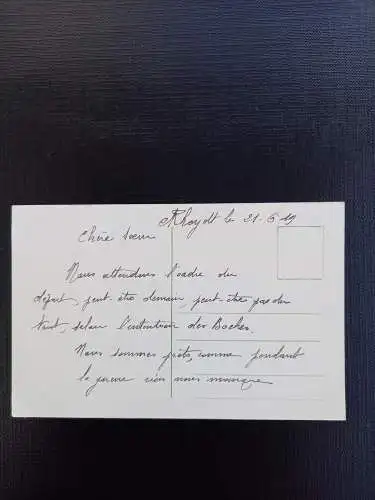 Rheydt le 21-6-19
Chère soeur
Nous attendons l'ordre du
départ, peut être demain, peut-être pas du
tout, selon l'intention des Boches.
Nous sommes prêts, comme pendant
la guerre rien nous manque